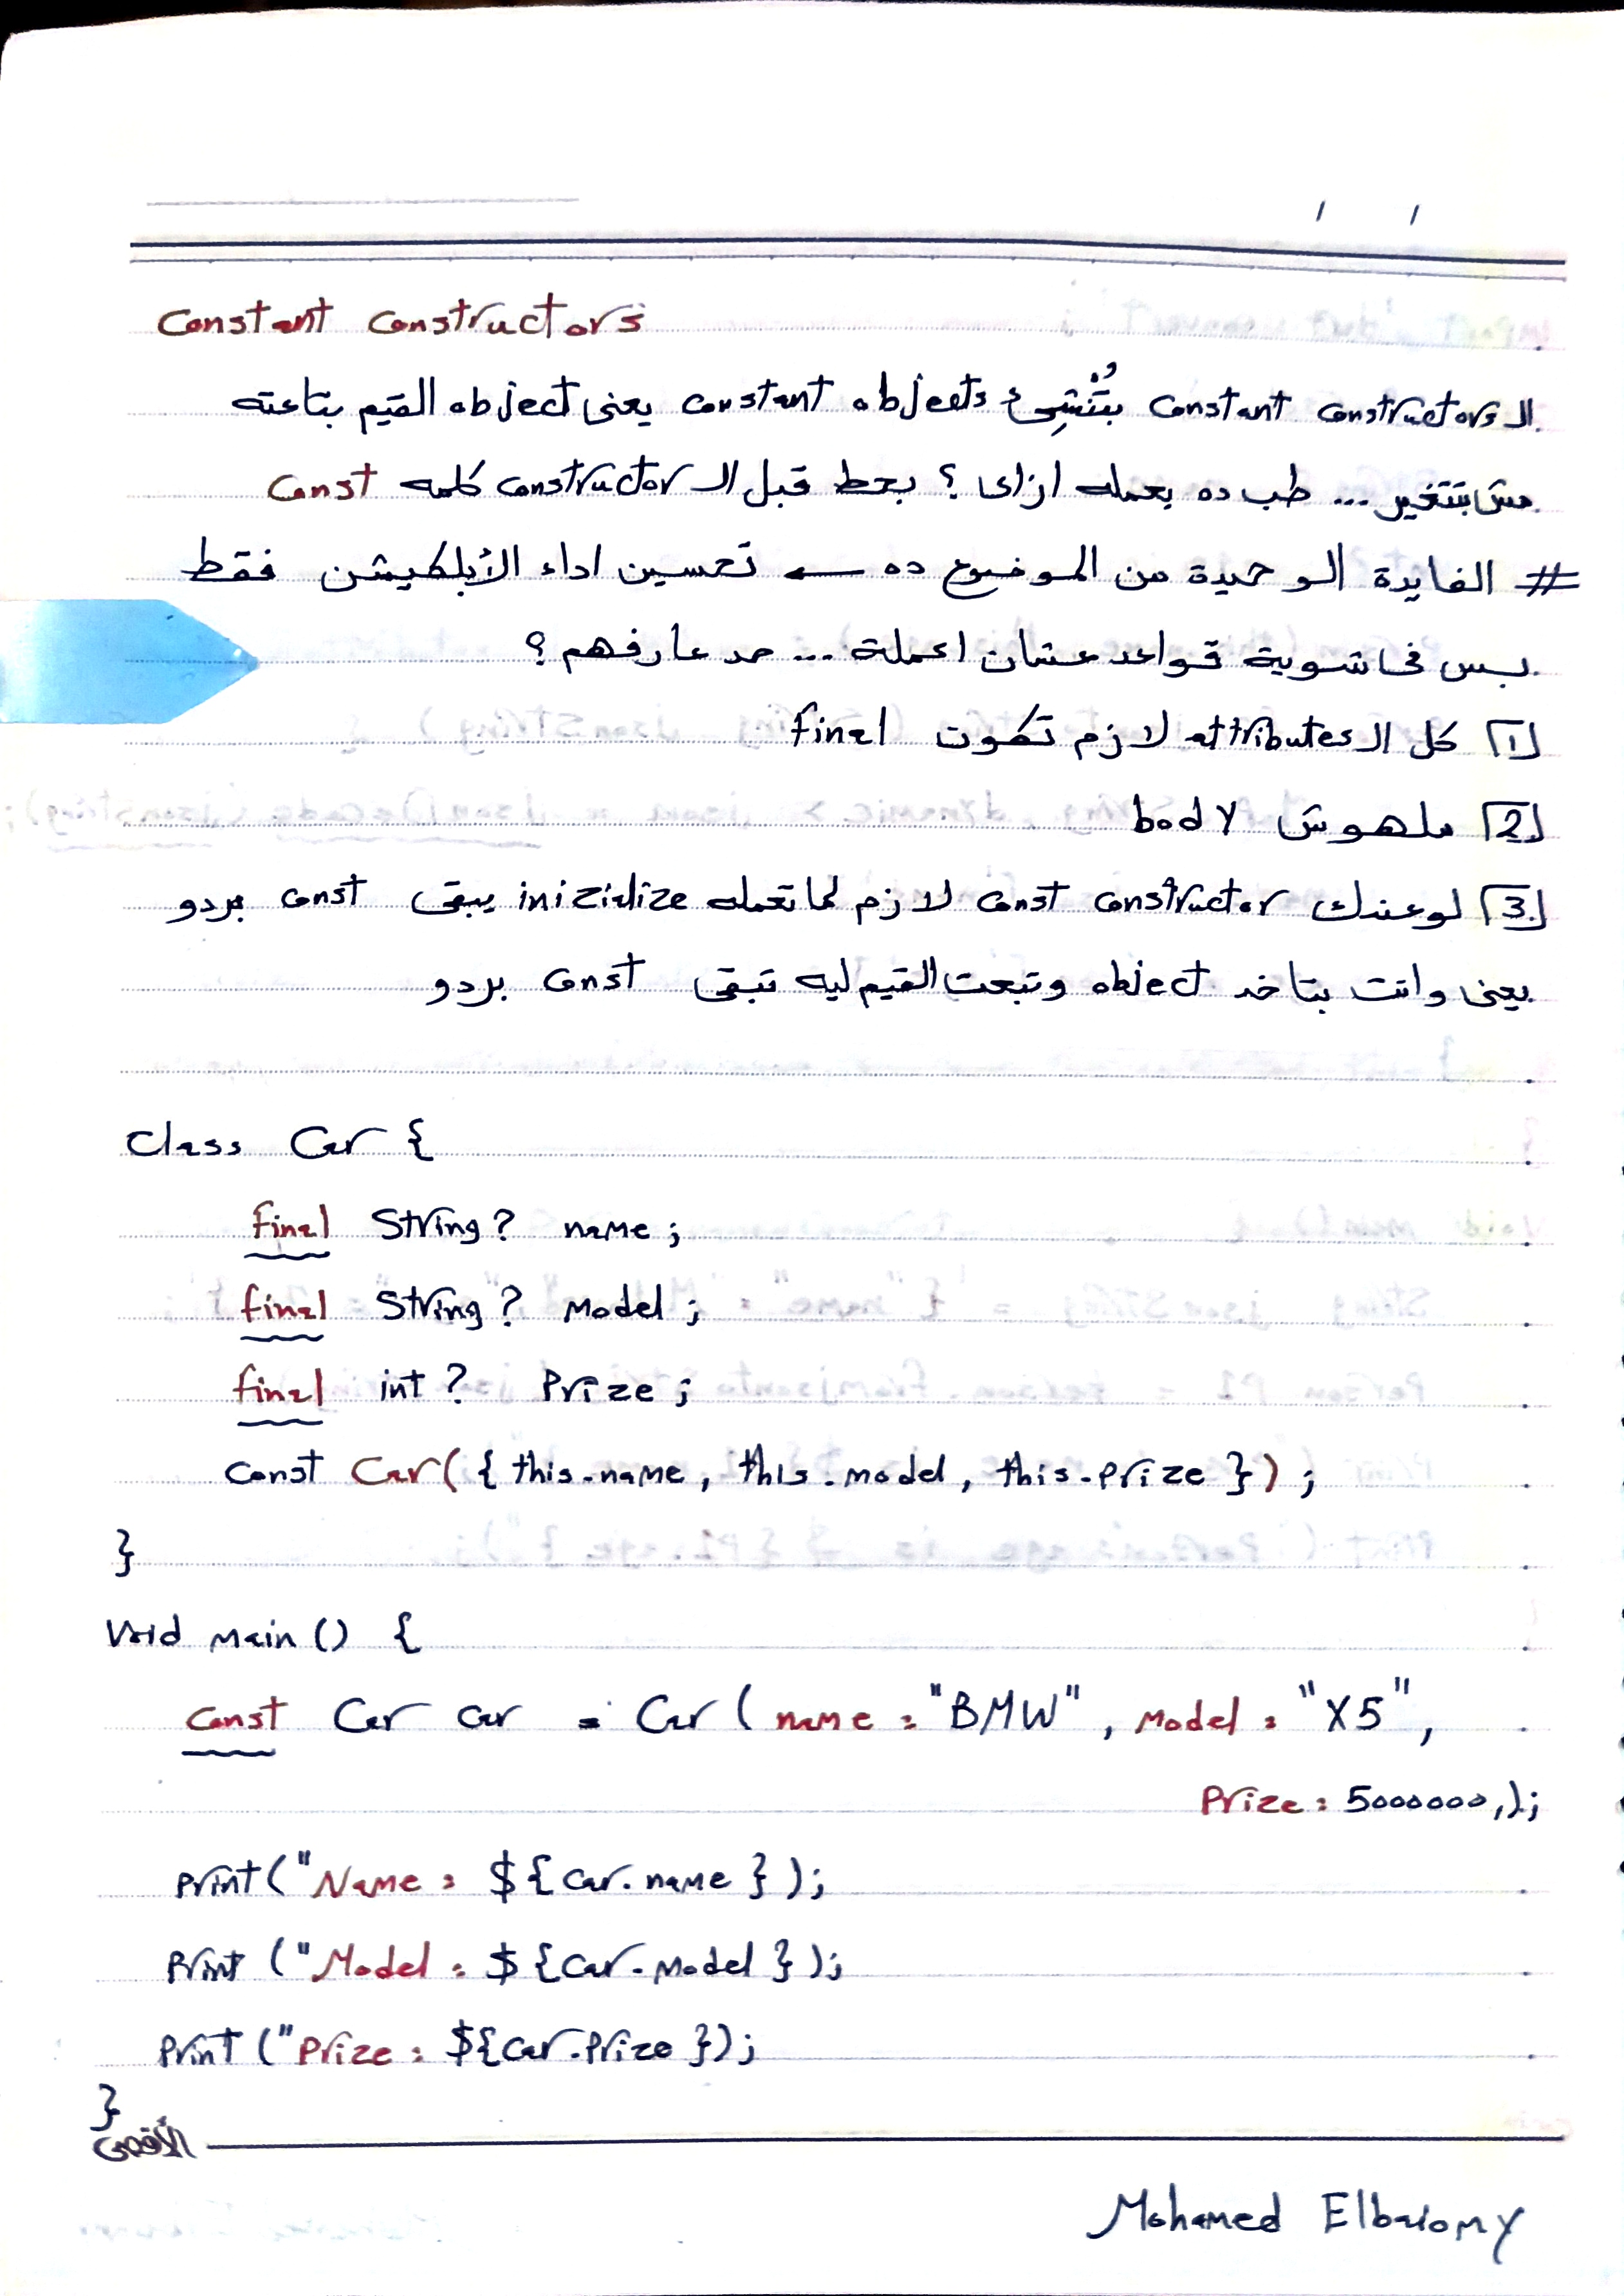 / /
Constant Constructors
الـ constant constructors بتُنْشِئ constant objects يعنى object القيم بتاعته
مش بتتغير ... طب ده بعمله ازاى ؟ بحط قبل الـ constructor كلمه const
# الفايدة الوحيدة من الموضوع ده ← تحسين اداء الأبلكيشن فقط
بس فى شوية قواعد عشان اعملة ... حد عارفهم ؟
1 كل الـ attributes لازم تكون final
2 ملهوش body
3 لو عندك const constructor لازم لما تعمله inizialize يبقى const بردو
يعنى وانت بتاخد object وتبعت القيم ليه تبقى const بردو
Class Car {
final String? name ;
final String? Model ;
final int? Prize ;
const Car( { this.name , this.model , this.prize } ) ;
}
Void main () {
const Car car = Car ( name : "BMW" , Model : "X5" ,
Prize : 5000000,);
print("Name : ${car.name } );
Print ("Model : $ {car.Model } );
Print ("Prize : ${car.Prize });
}
الأقصى
Mohamed Elbaiomy